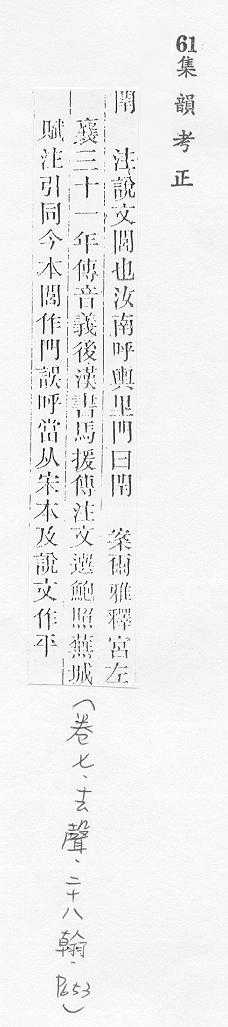 61集韻考正
閈　注說文閭也汝南呼輿里門曰閈　案爾雅釋宮左
襄三十一年傳音義後漢書馬援傳注文選鮑照蕪城
賦注引同今本閭作門誤呼當从宋本及說文作平
(卷七、去聲、二十八翰、P653)